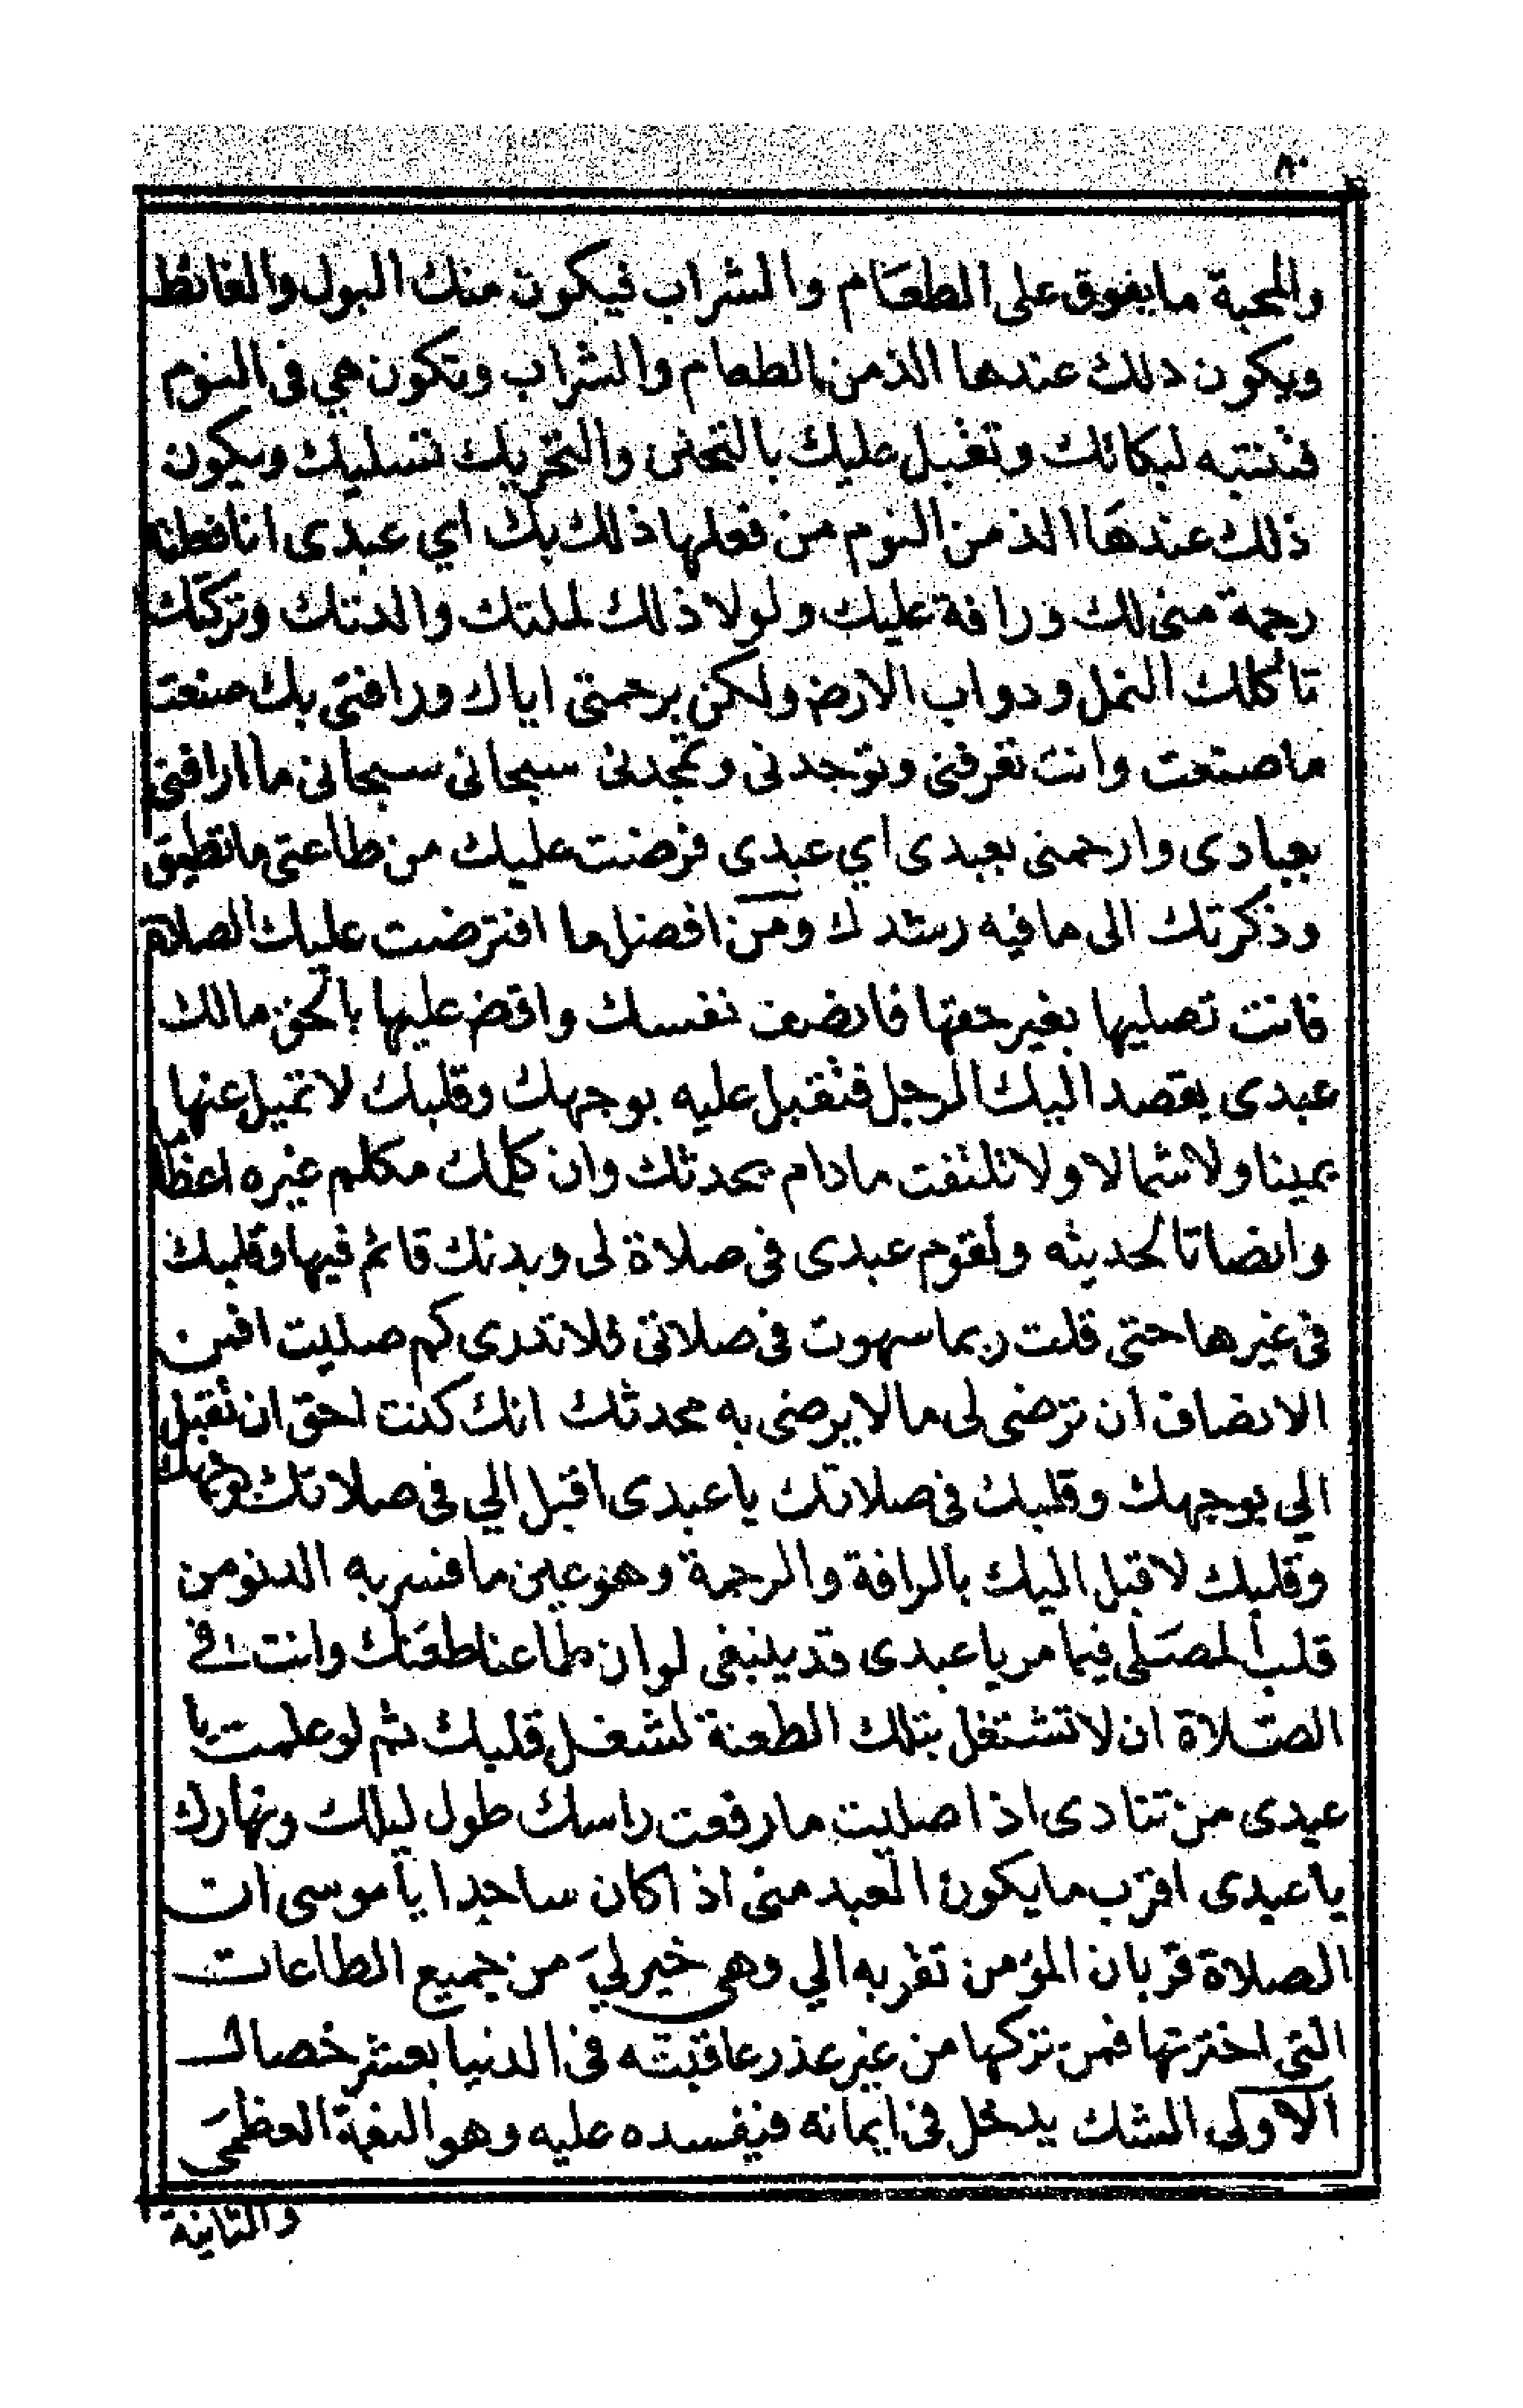 ٨٠
والمحبة ما يفوق على الطعام والشراب فيكون منك البول والغائط
ويكون ذلك عندها الذ من الطعام والشراب وتكون هي في النوم
فتنتبه لبكائك وتقبل عليك بالتحنى والتحريك تسليك ويكون
ذلك عندها الذ من النوم من فعلها ذلك بك اي عبدى انا فعلته
رحمة منى لك ورافة عليك ولولا ذلك لملتك والدتك وتركتك
تأكلك النمل ودواب الارض ولكن برحمتى اياك ورافتى بك صنعت
ما صنعت وانت تعرفنى وتوحدنى وتمجدنى سبحانى سبحانى ما ارافنى
بعبادى وارحمنى بعبدى اي عبدى فرضت عليك من طاعتى ما تطيق
وذكرتك الى ما فيه رشدك ومن افضل ما افترضت عليك الصلاة
فانت تصليها بغير حقها فانصف نفسك واقض عليها بالحق مالك
عبدى يقصد اليك الرجل فتقبل عليه بوجهك وقلبك لا تميل عنها
يمينا ولا شمالا ولا تلتفت مادام يحدثك وان كلمك مكلم غيره اعظاما
وانصاتا لحديثه وتقوم عبدى فى صلاة لى وبدنك قائم فيها وقلبك
فى غيرها حتى قلت ربما سهوت فى صلاتى فلا تدرى كم صليت افمن
الانصاف ان ترضى لى ما لا يرضى به محدثك انك كنت احق ان تقبل
الي بوجهك وقلبك فى صلاتك يا عبدى اقبل الي فى صلاتك بوجهك
وقلبك لاقبل اليك بالرافة والرحمة وهو عين ما فسر به الدنو من
قلب المصلى فيما مر يا عبدى قد ينبغى لو ان طاعنا طعنك وانت فى
الصلاة ان لا تشتغل بتلك الطعنة لشغل قلبك ثم لو علمت يا
عبدى من تنادى اذا صليت ما رفعت راسك طول ليلك ونهارك
يا عبدى اقرب ما يكون العبد منى اذا كان ساجدا يا موسى ان
الصلاة قربان المؤمن تقربه الي وهى خير لي من جميع الطاعات
التى اخترتها فمن تركها من غير عذر عاقبته فى الدنيا بعشر خصال
الاولى الشك يدخل فى ايمانه فيفسده عليه وهو النقمة العظمى
والثانية